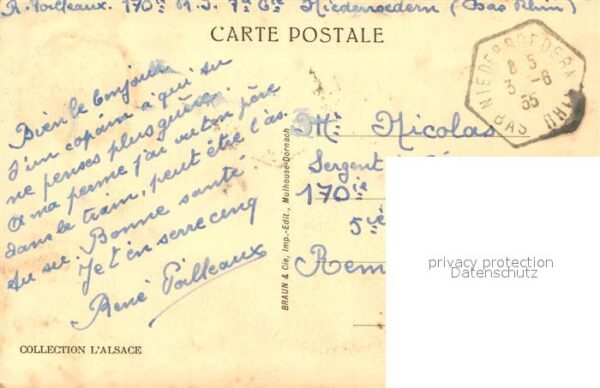 R. Poilleaux. 170ie R.I. 7e Cie Niederroedern (Bas Rhin)
CARTE POSTALE
NIEDERROEDERN
8 5
3 -8
35
BAS RHIN
Bien le bonjour
d'un copain à qui tu
ne penses plus guère.
A ma perme j'ai vu ton père
dans le train, peut être l'as
tu su. Bonne santé.
Je t'en serre cinq
René Poilleaux
BRAUN & Cie, Imp.-Edit., Mulhouse-Dornach
Mr Nicolas
Sergent
170ie
5ie
Rem
privacy protection
Datenschutz
COLLECTION L'ALSACE